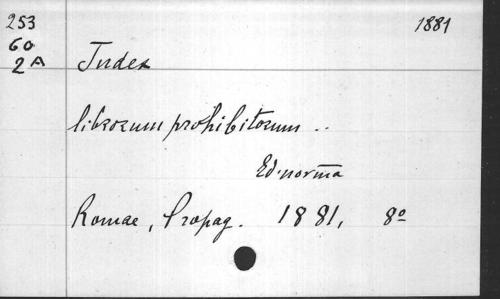 253 1881
60
2A Index
librorum prohibitorum ..
Ed. norma
Romae, Propag. 1881, 8º